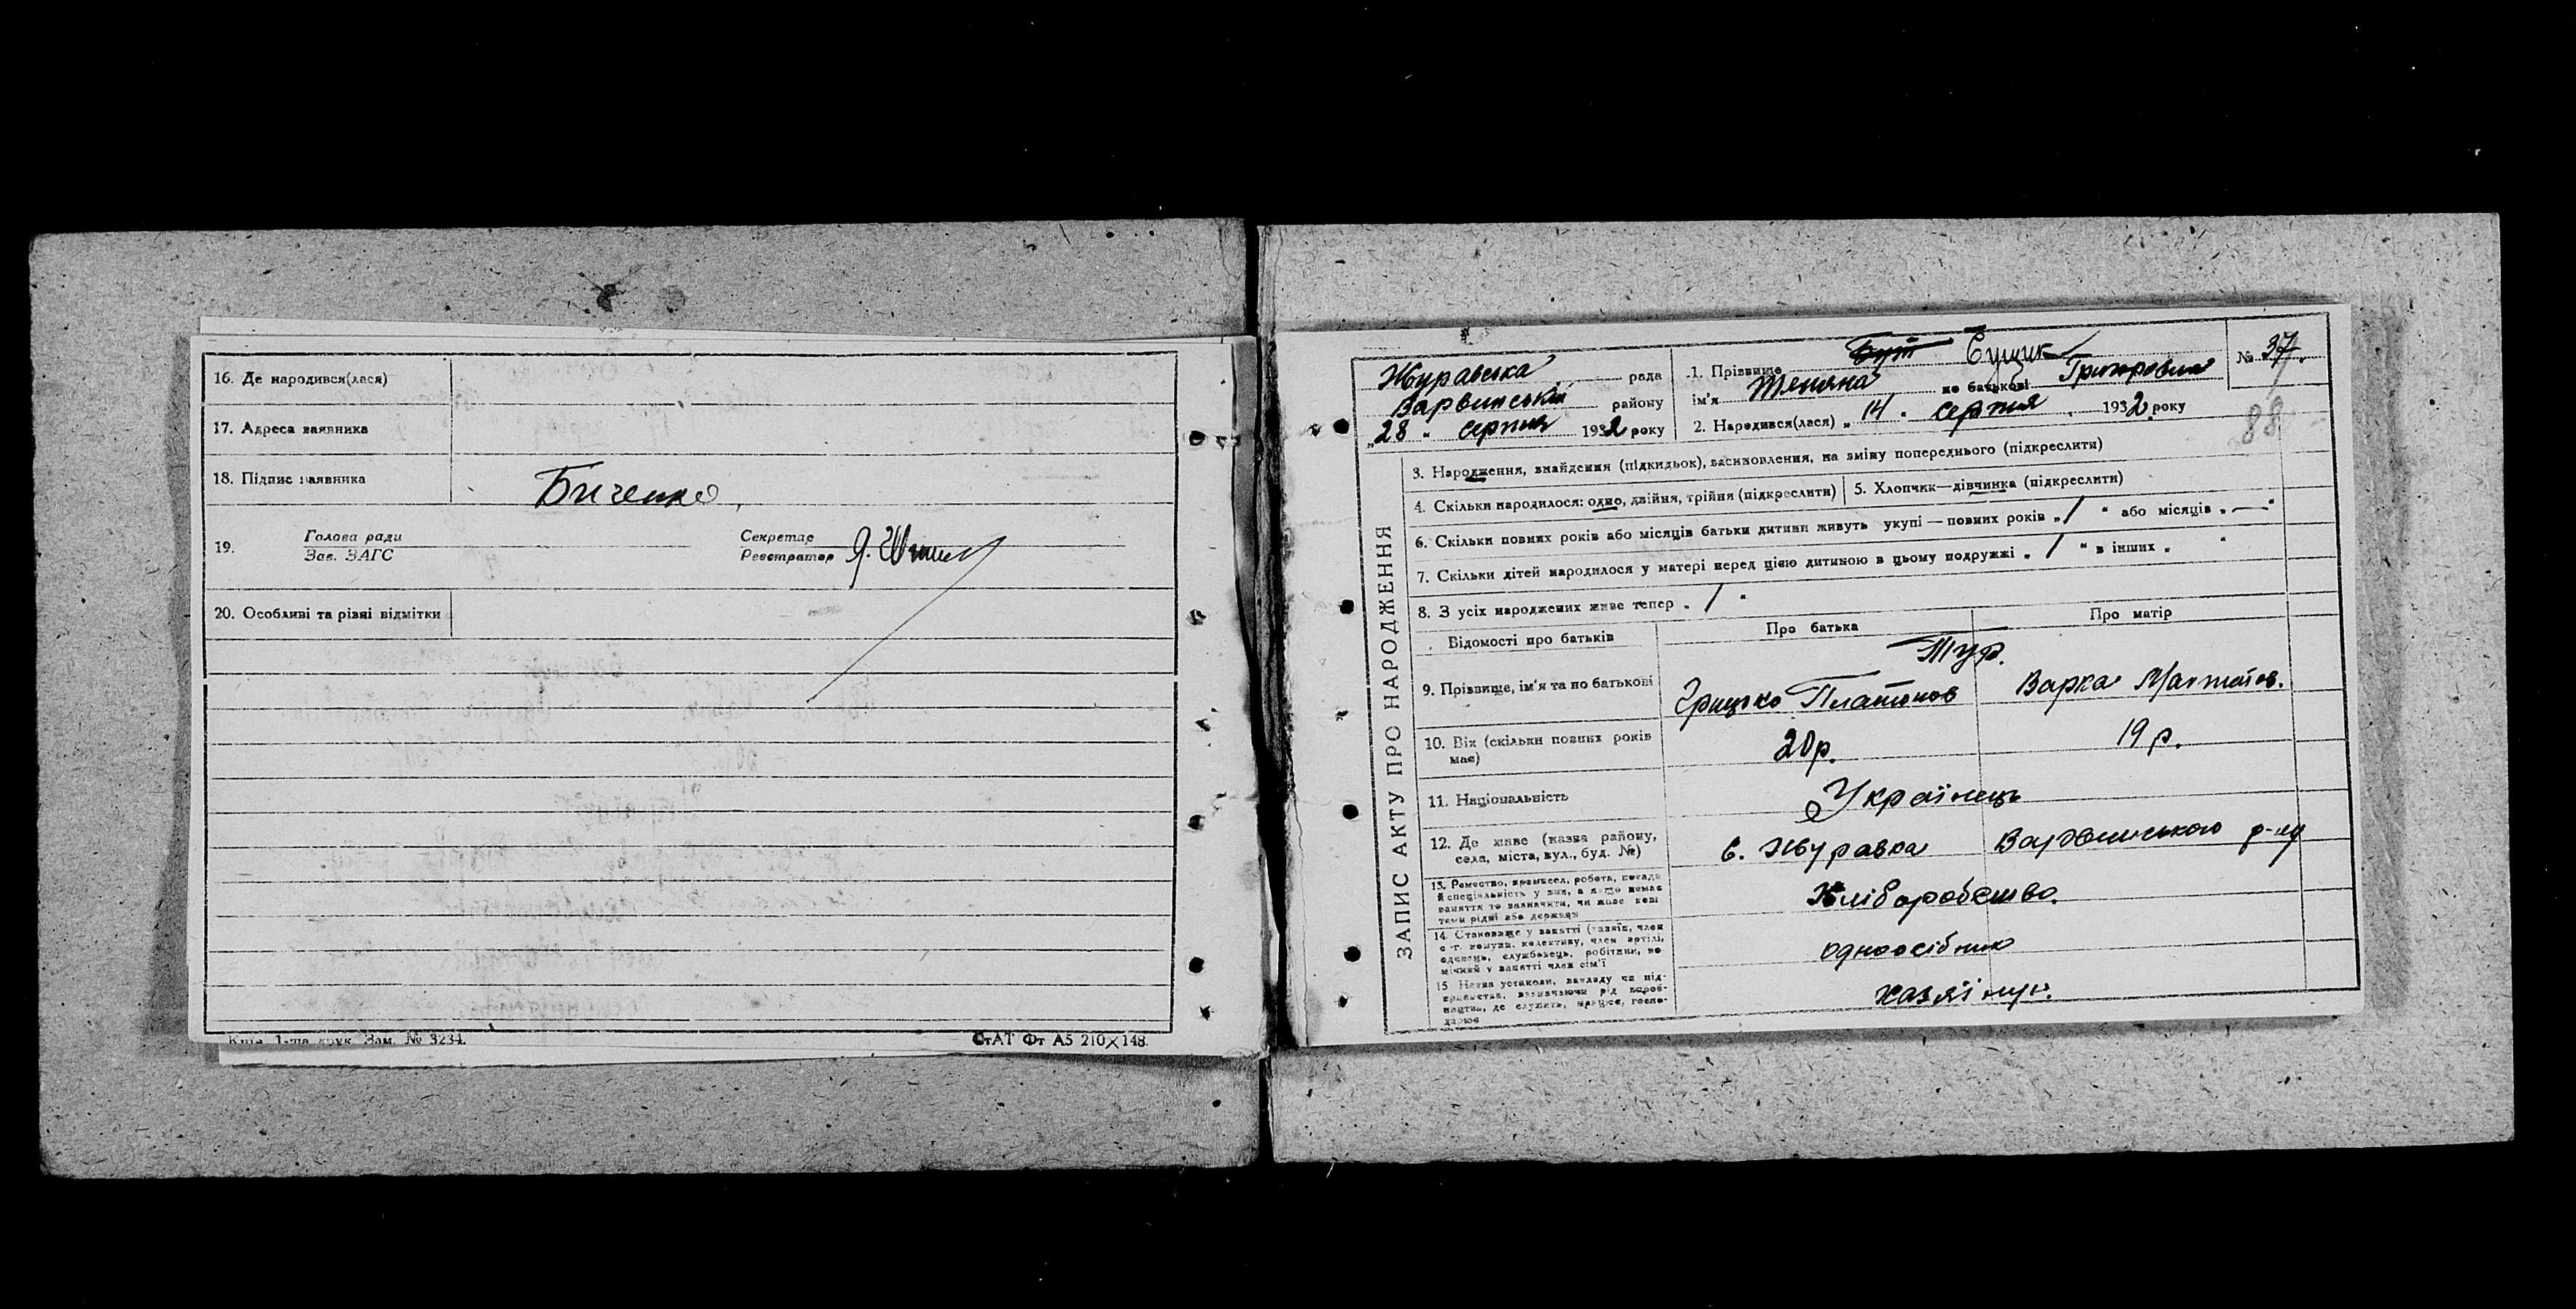 16. Де народився(лася)
17. Адреса заявника
18. Підпис заявника Биченко
19. Голова ради Секретар
Зав. ЗАГС Реєстратор Я.
20. Особливі та різні відмітки
Київ, 1-ша друк. Зам. № 3234. СтАТ Фт А5 210×148.
ЗАПИС АКТУ ПРО НАРОДЖЕННЯ
Журавська рада
Варвинський району
„28 " серпня 1932 року
1. Прізвище Бут Сущик
ім'я Тетяна по батькові Григоровна
2. Народився(лася) „ 14 . серпня 1932 року
№ 37.
88
3. Народження, знайдення (підкидьок), всиновлення, на зміну попереднього (підкреслити)
4. Скільки народилося: одно, двійня, трійня (підкреслити) 5. Хлопчик—дівчинка (підкреслити)
6. Скільки повних років або місяців батьки дитини живуть укупі — повних років „ 1 " або місяців „ — "
7. Скільки дітей народилося у матері перед цією дитиною в цьому подружжі „ 1 " в інших „ "
8. З усіх народжених живе тепер „ 1 "
Відомості про батьків Про батька Про матір
9. Прізвище, ім'я та по батькові
Грицько Платонов Варка
10. Вік (скільки повних років має) 20 р. 19 р.
11. Національність Українець
12. Де живе (назва району, села, міста, вул., буд. №) с. Журавка Варвинського р-ну
13. Ремество, промисел, робота, посада й спеціальність у них, а якщо немає заняття то зазначити, чи живе коштами рідні або держави Хліборобство.
14. Становище у занятті (хазяїн, член с.-г. комуни, колективу, член артілі, одинець, службовець, робітник, помічний у занятті член сім'ї одноосібник
15. Назва установи, закладу чи підприємства, зазначаючи рід виробництва, де служить, працює, господарює